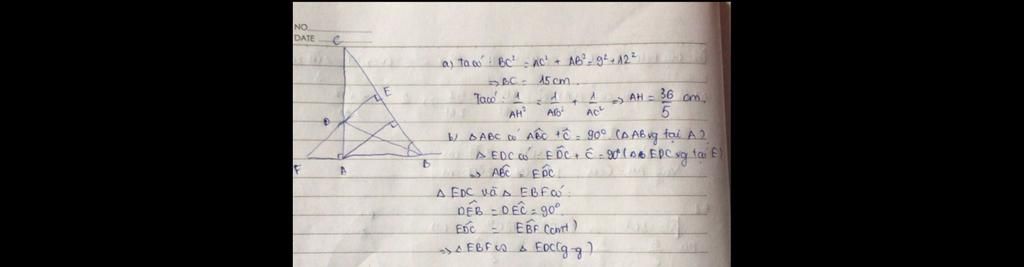 NO.
DATE
C
E
D
F
A
B
a) Ta có: BC² = AC² + AB² = 9² + 12²
⇒ BC = 15 cm.
Ta có: 1/AH² = 1/AB² + 1/AC² ⇒ AH = 36/5 cm.
b, Δ ABC có ABC + Ĉ = 90° (Δ AB vg tại A)
Δ EDC có: EDC + Ĉ = 90° (Δ EDC vg tại E)
⇒ ABC = EDC
Δ EDC và Δ EBF có
DEB = DEC = 90°
EDC = EBF (cmt)
⇒ Δ EBF ∽ Δ EDC (g-g)